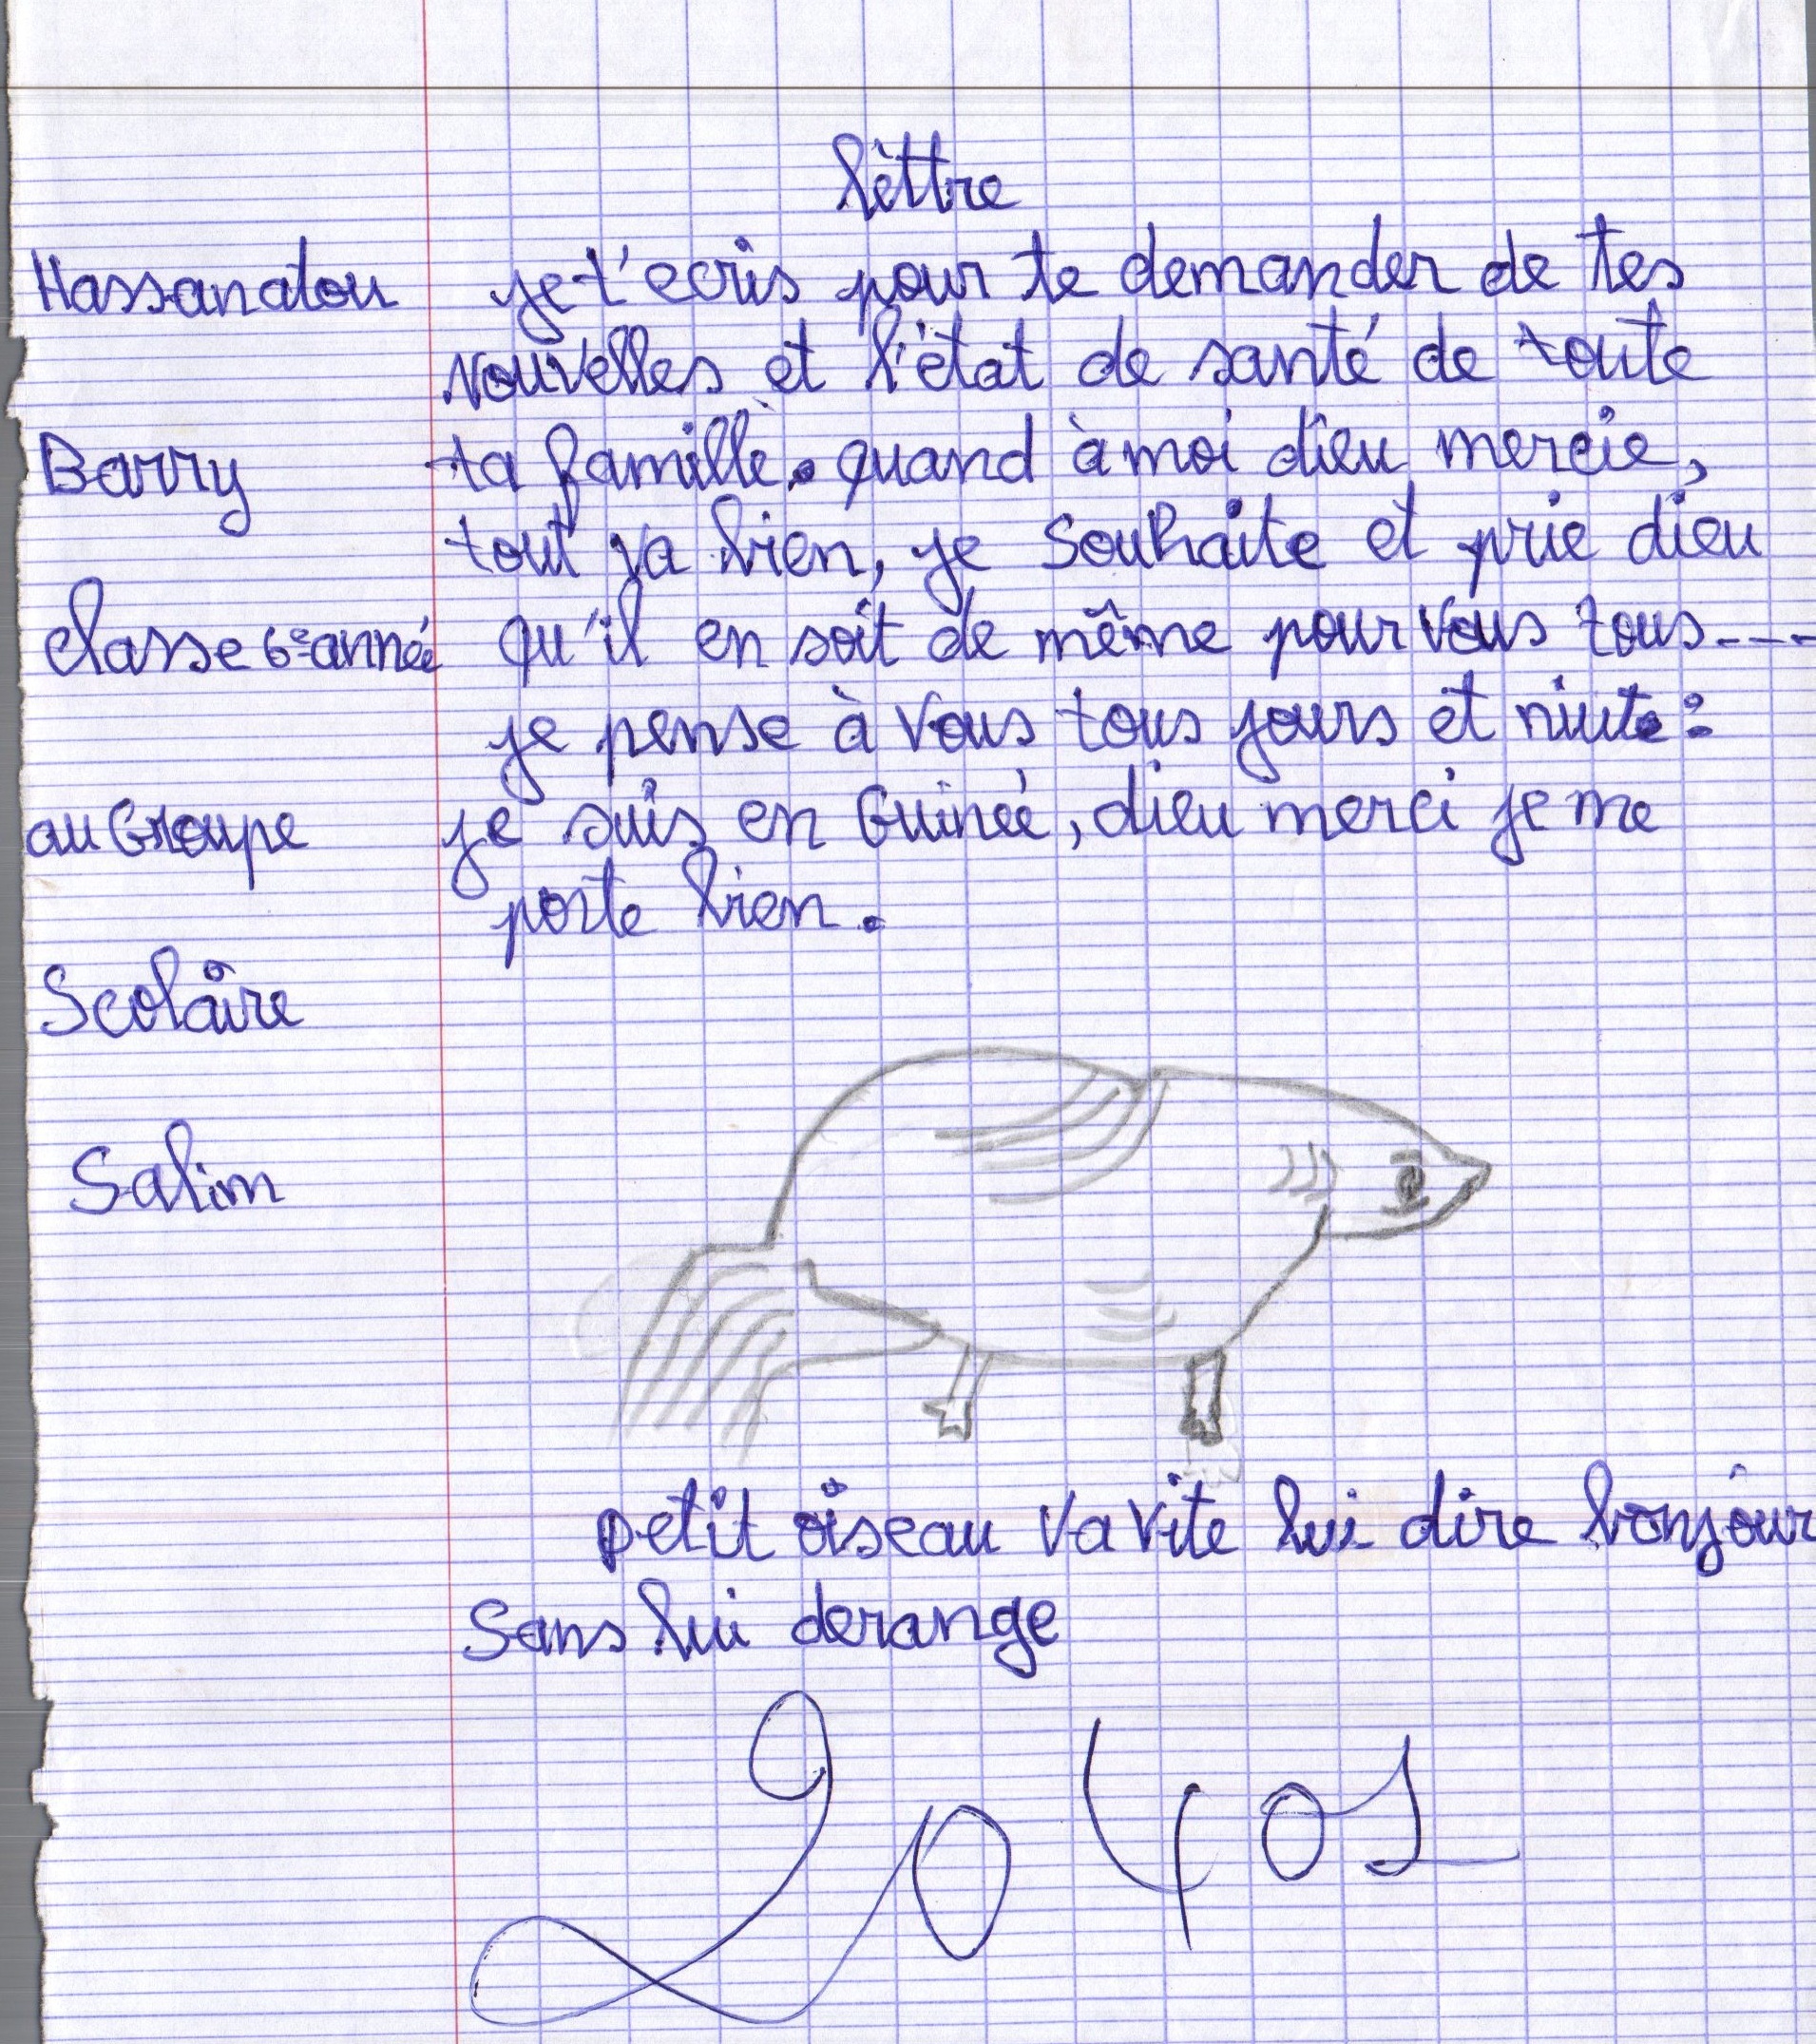 lèttre
Hassanatou
Barry
classe 6e année
au Groupe
Scolaire
Salim
je t'ecris pour te demander de tes
nouvelles et l'état de santé de toute
ta famille. quand à moi dieu mercie,
tout va bien, je souhaite et prie dieu
qu'il en soit de même pour vous tous----
je pense à vous tous jours et niute:
je suis en Guinée, dieu merci je me
porte bien.
petit oiseau va vite lui dire bonjour
Sans lui derange